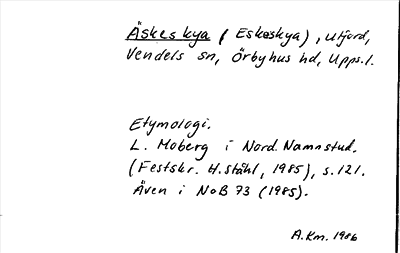 Äskeskya (Eskeskya), utjord,
Vendels sn, Örbyhus hd, Upps.l.
Etymologi.
L. Moberg i Nord. Namnstud.
(Festskr. H. Ståhl, 1985), s. 121.
Även i NoB 73 (1985).
A.Km. 1986